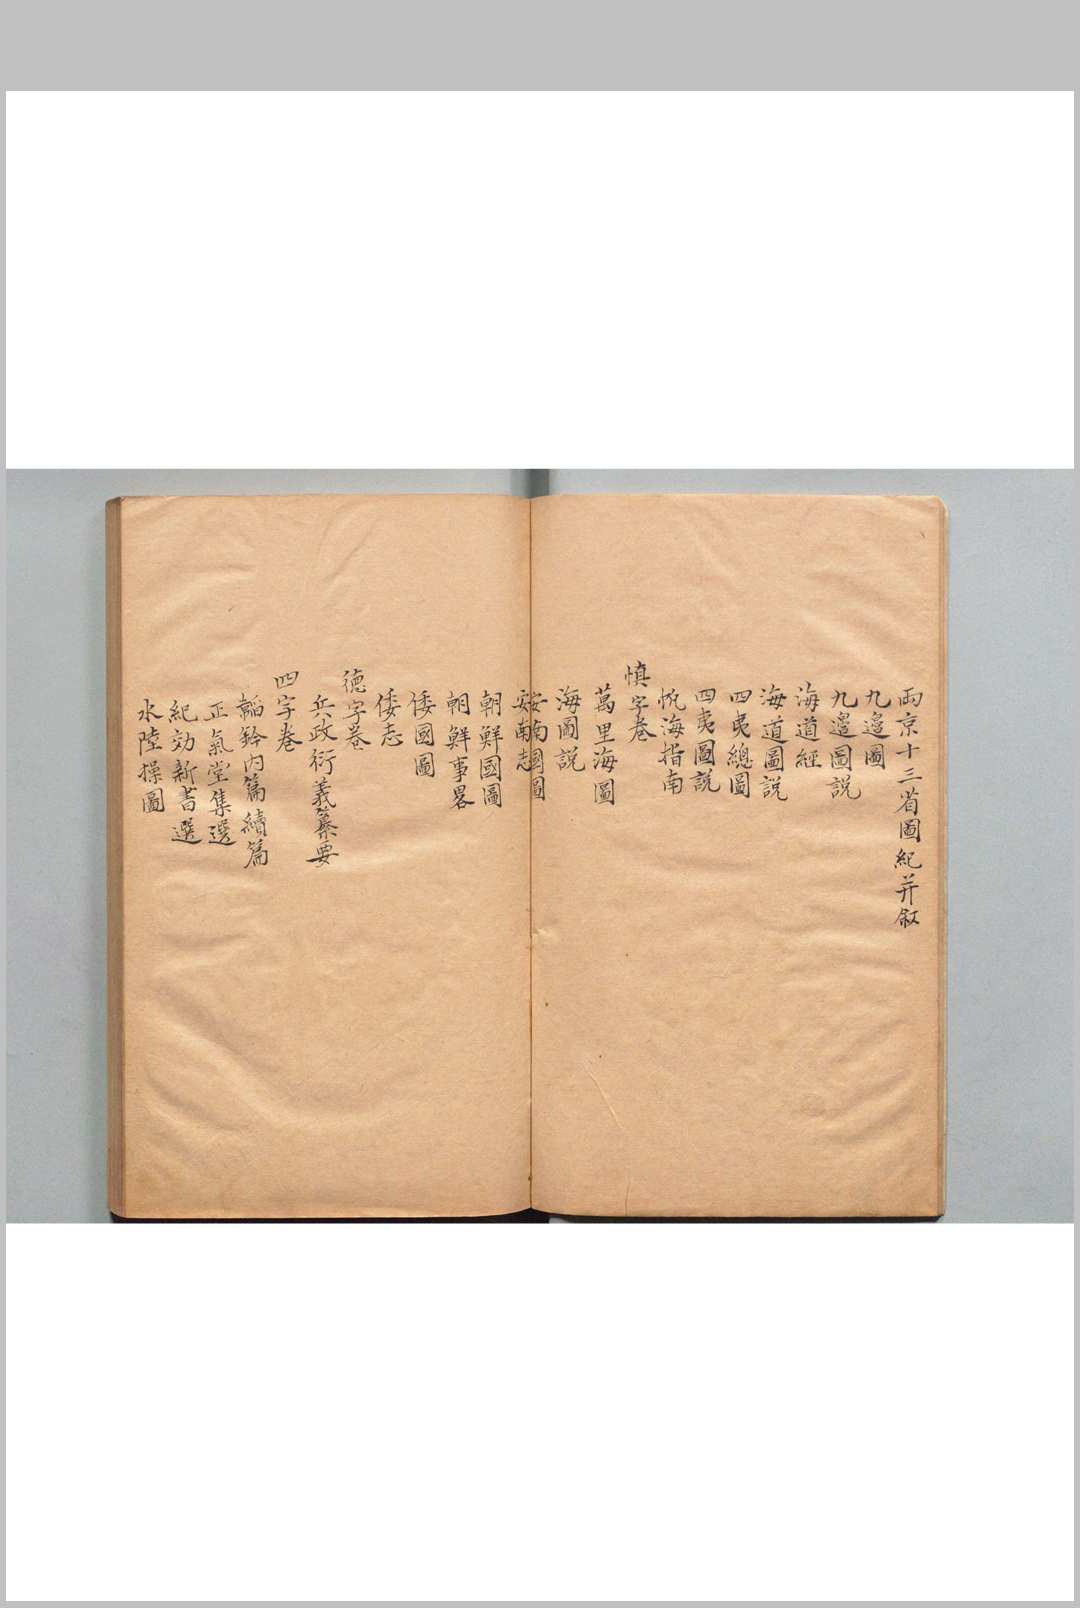 兩京十三省圖紀并敘
九邉圖
九邉圖説
海道經
海道圖説
四夷總圖
四夷圖説
帨海指南
慎字卷
萬里海圖
海圖説
安南國圖
安南志
朝鮮國圖
朝鮮事畧
倭國圖
倭志
德字卷
兵政衍義纂要
四字卷
韜鈐内篇續篇
正氣堂集選
紀効新書選
水陸操圖